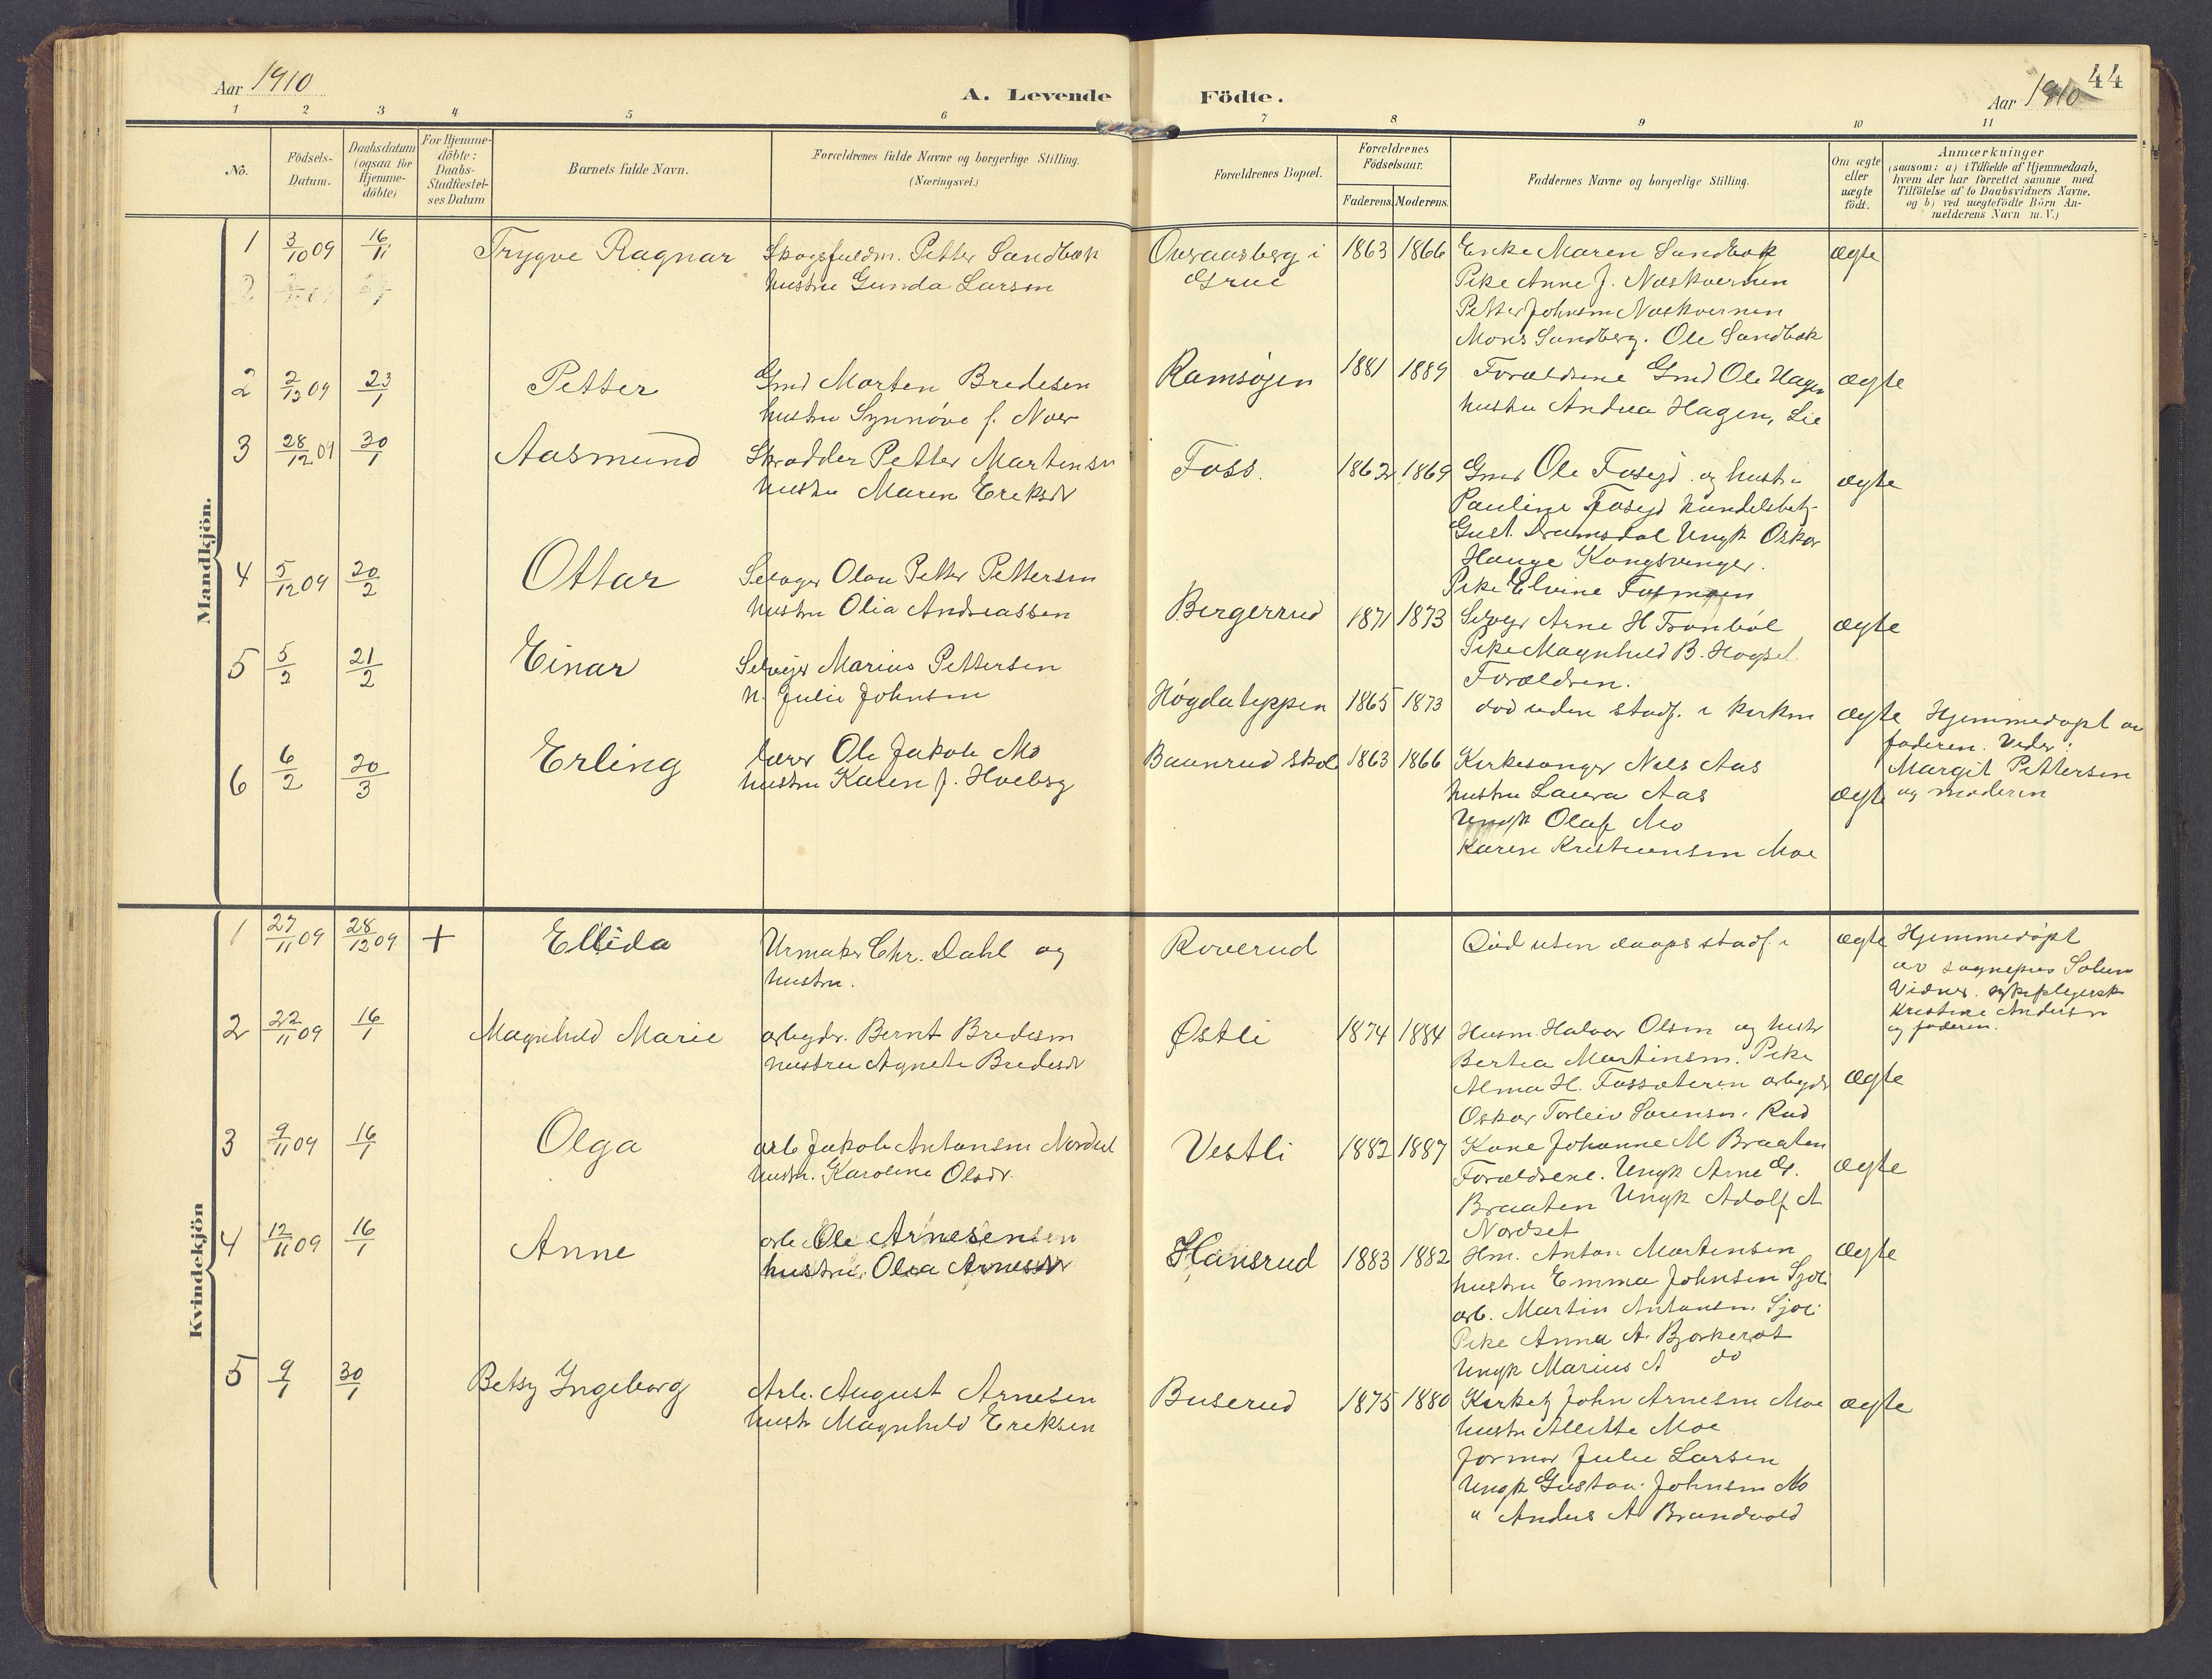 Aar 1910
A. Levende Födte.
44
Aar 1910
1 2 3 4 5 6 7 8 9 10 11
No.
Födsels-
Datum.
Daabsdatum
(ogsaa for
Hjemme-
döbte)
For Hjemme-
döbte:
Daabs-
Stadfæstel-
ses Datum
Barnets fulde Navn.
Forældrenes fulde Navne og borgerlige Stilling.
(Næringsvei.)
Forældrenes Bopæl.
Forældrenes
Födselsaar.
Faderens. Moderens.
Faddernes Navne og borgerlige Stilling.
Om ægte
eller
uægte
født.
Anmærkninger
(saasom: a) i Tilfælde af Hjemmedaab,
hvem der har forrettet samme med
Tilföielse af to Daabsvidners Navne,
og b) ved uægtefödte Börn An-
melderens Navn m.V.)
Mandkjön.
1 3/10 09 16/1 Trygve Ragnar Skogsfuldm. Petter Sandbæk
hustru Gunda Larsen
Overaasberg i
Grue
1863 1866 Enke Maren Sandbæk
Pike Anne J. Næskvernen
Petter Johnsen Næskvernen
Mons Sandberg. Ole Sandbæk
ægte
2 2/12 09 23/1 Petter Gmd Morten Bredesen
hustru Synnöve f. Noer
Ramsøyen 1881 1889 Forældrene Gmd Ole Hagen
hustru Andrea Hagen, Lie
ægte
3 28/12 09 30/1 Aasmund Skrædder Petter Martinsen
hustru Maren Eriksdr
Foss. 1862 1869 Gmd Ole Foseid og hustru
Pauline Foseid handelsbetj.
Gust. Dramsdal Ungk Oskar
Hauge Kongsvinger.
Pike Elvine Fosmoen
ægte
4 5/12 09 20/2 Ottar Selveger Olau Petter Pettersen
hustru Olia Andreassen
Bergerrud 1871 1873 Selveger Arne H Tronböl
Pike Magnhild B. Hogset
Forældren.
ægte
5 5/2 21/2 Einar Selveier Marius Pettersen
h. Julie Johnsen
Högdateppen 1865 1873 död uden stadf. i kirken ægte
Hjemmedøpt av
faderen. Vidner:
Margit Pettersen
og moderen
6 6/2 20/3 Erling Lærer Ole Jakob Mo
hustru Karen f. Hoeberg
Baunrud skole 1863 1866 Kirkesanger Nils Aas
hustru Laura Aas
Ungk Olaf Mo
Karen Kristiansen Moe
ægte
Kvindekjön
1 27/11 09 28/12 09 + Ellida Urmaker Chr. Dahl og
hustru.
Roverud Död uten daaps stadf. ægte
Hjemmedøpt
av sogneprest Solum
Vidner. sykepleierske
Kristine Andersen
og faderen.
2 22/11 09 16/1 Magnhild Marie arbeider. Bernt Bredesen
hustru Agnete Bredesdr
Østli 1874 1884 Husm. Halvor Olsen og hustr
Bertea Martinsen. Pike
Alma H. Fossæteren arbeider
Oskar Torleiv Sørensen. Rud
ægte
3 9/11 09 16/1 Olga arb Jakob Antonsen Nordset
hustru. Karoline Olsdr.
Vestli 1882 1887 Kone Johanne M Braaten
Forældrene. Ungk Arne G.
Braaten Ungk Adolf A
Nordset
ægte
4 12/11 09 16/1 Anne arb. Ole Arnesen
hustru Olea Arnesdr
Hansrud 1883 1882 Hm. Anton Martinsen
hustru Emma Johnsen Sjöli
arb. Martin Antonsen Sjöli
Pike Anna A. Bjørkerot
Ungk Marius A do
ægte
5 9/1 30/1 Betsy Ingeborg Arb. August Arnesen
hustr Magnhild Eriksen
Buserud 1875 1880 Kirketj John Arnesen Moe
hustru Alette Moe
Jormor Julie Larsen
Ungk Gustav Johnsen Mo
" Anders A Brandvold
ægte